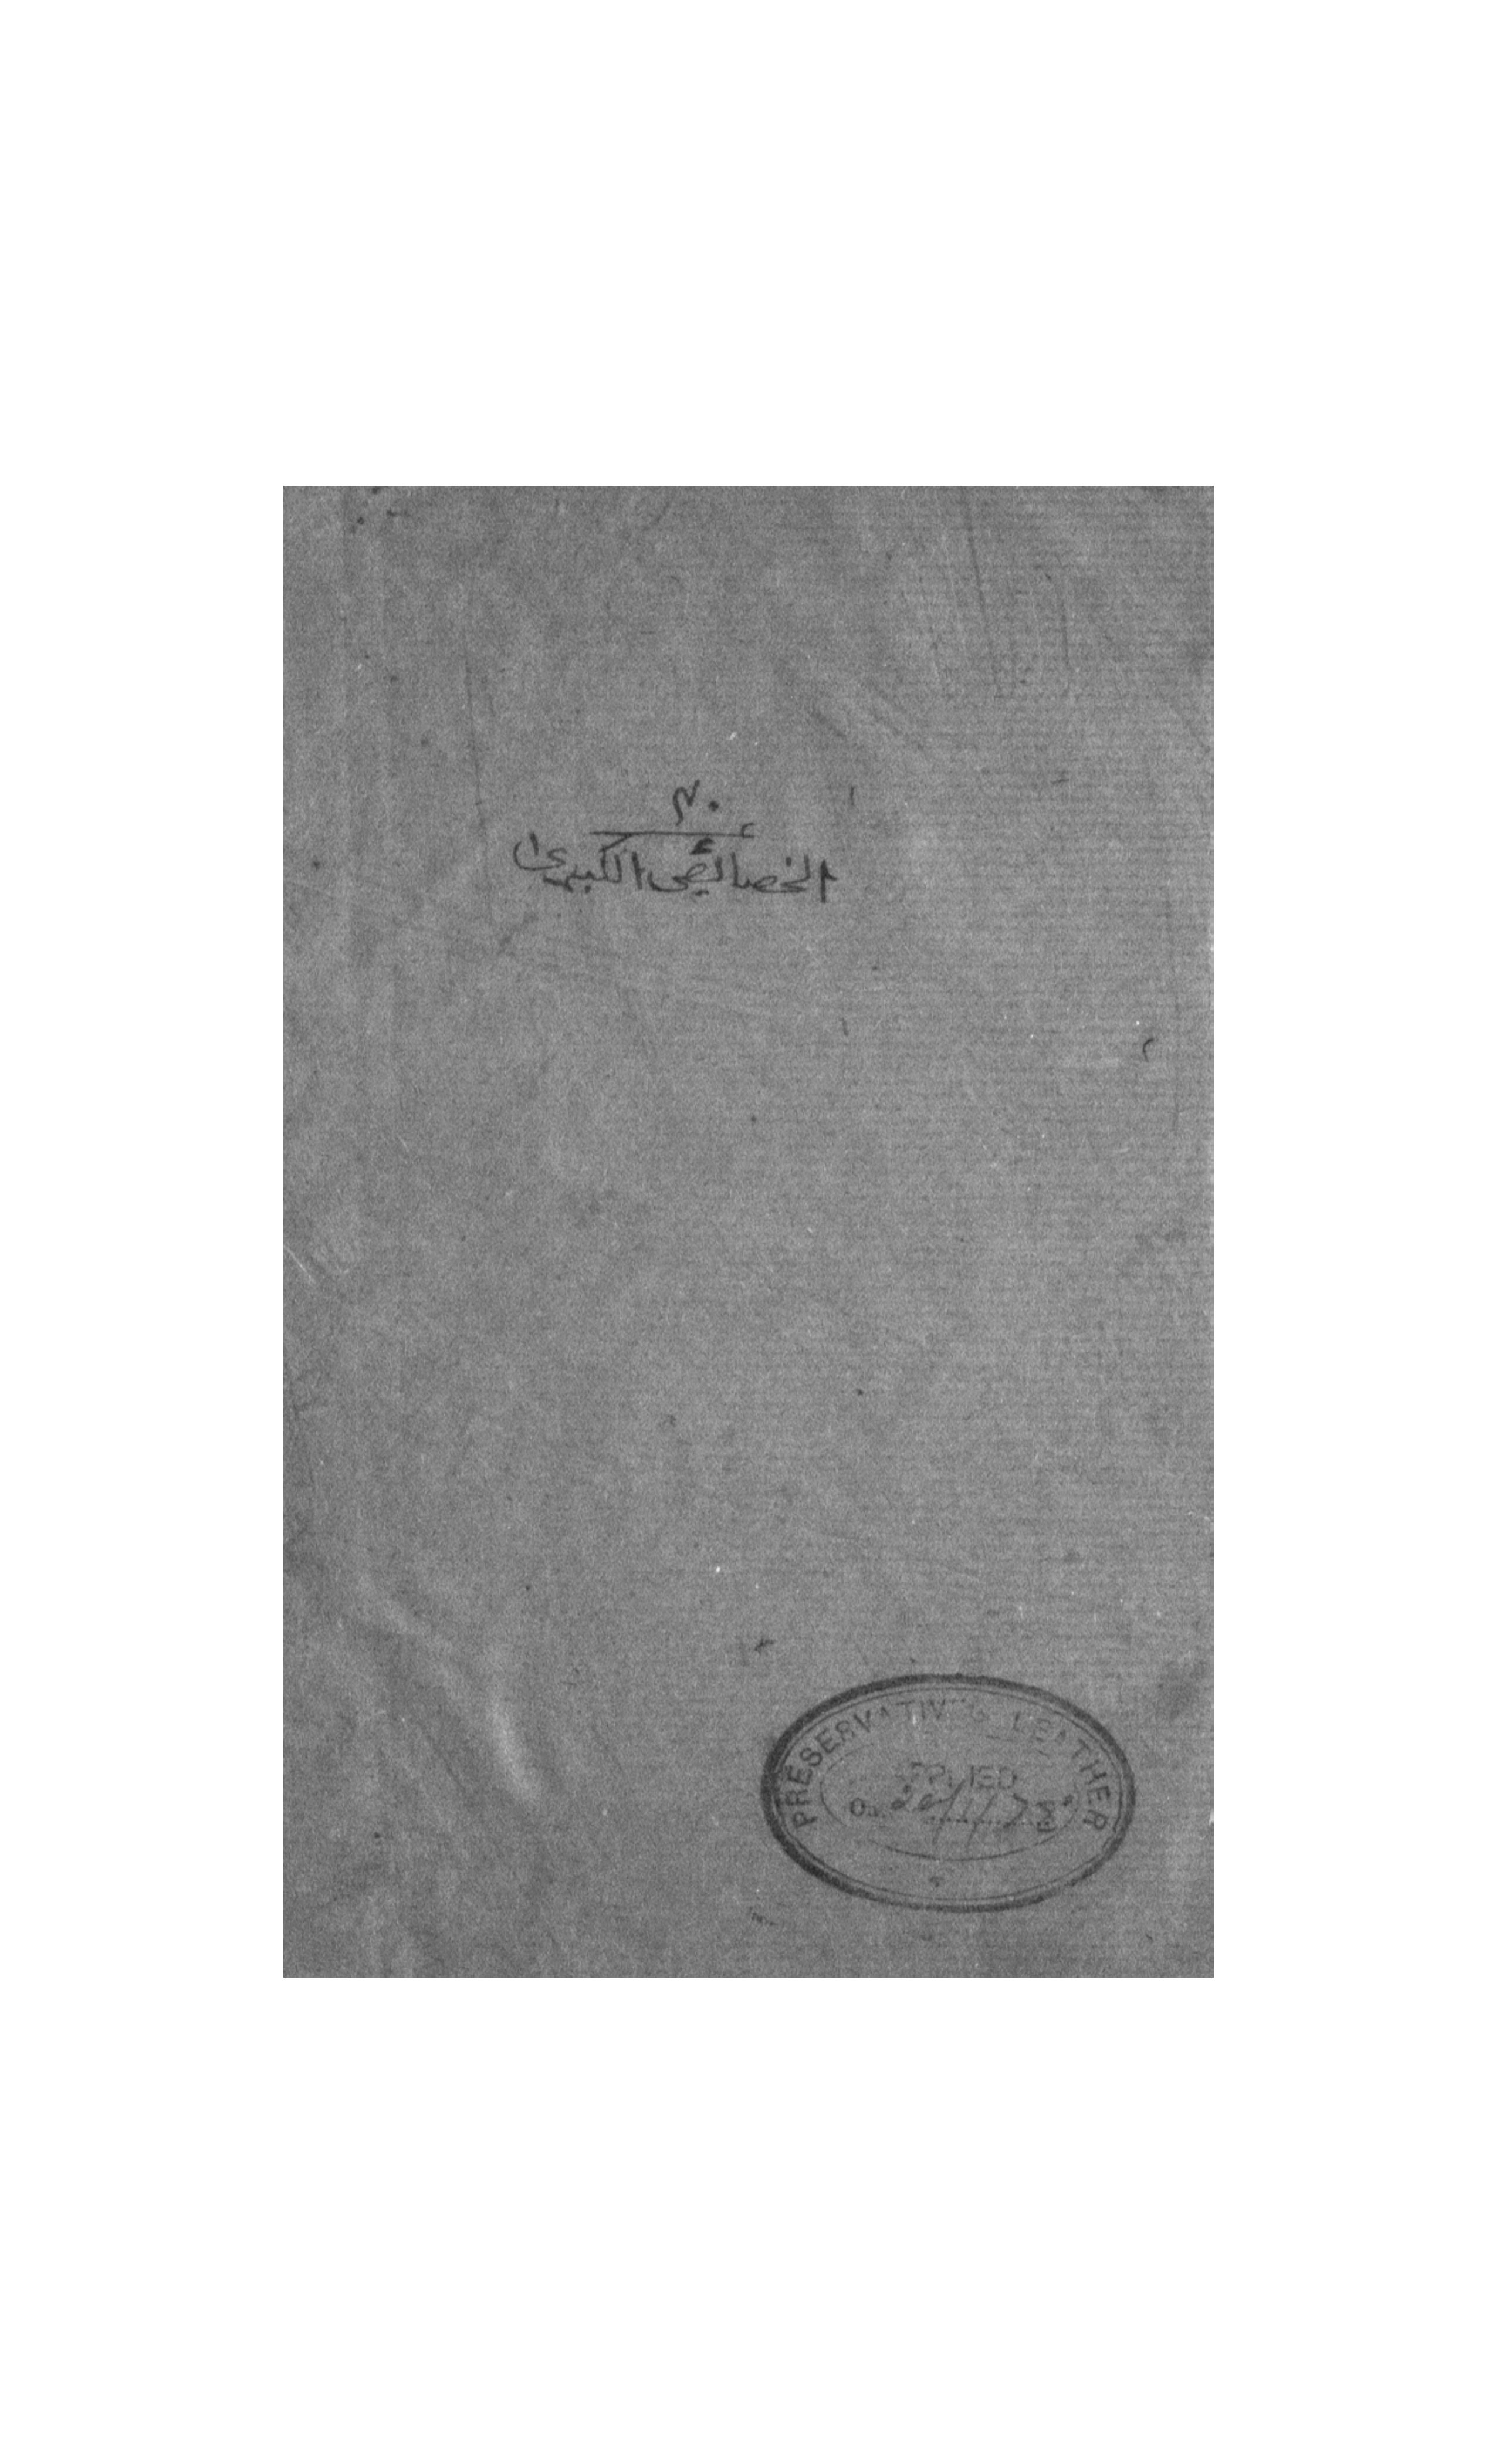 ٣٠
الخصائص الكبرى
PRESERVATIVE LEATHER
APPLIED
On